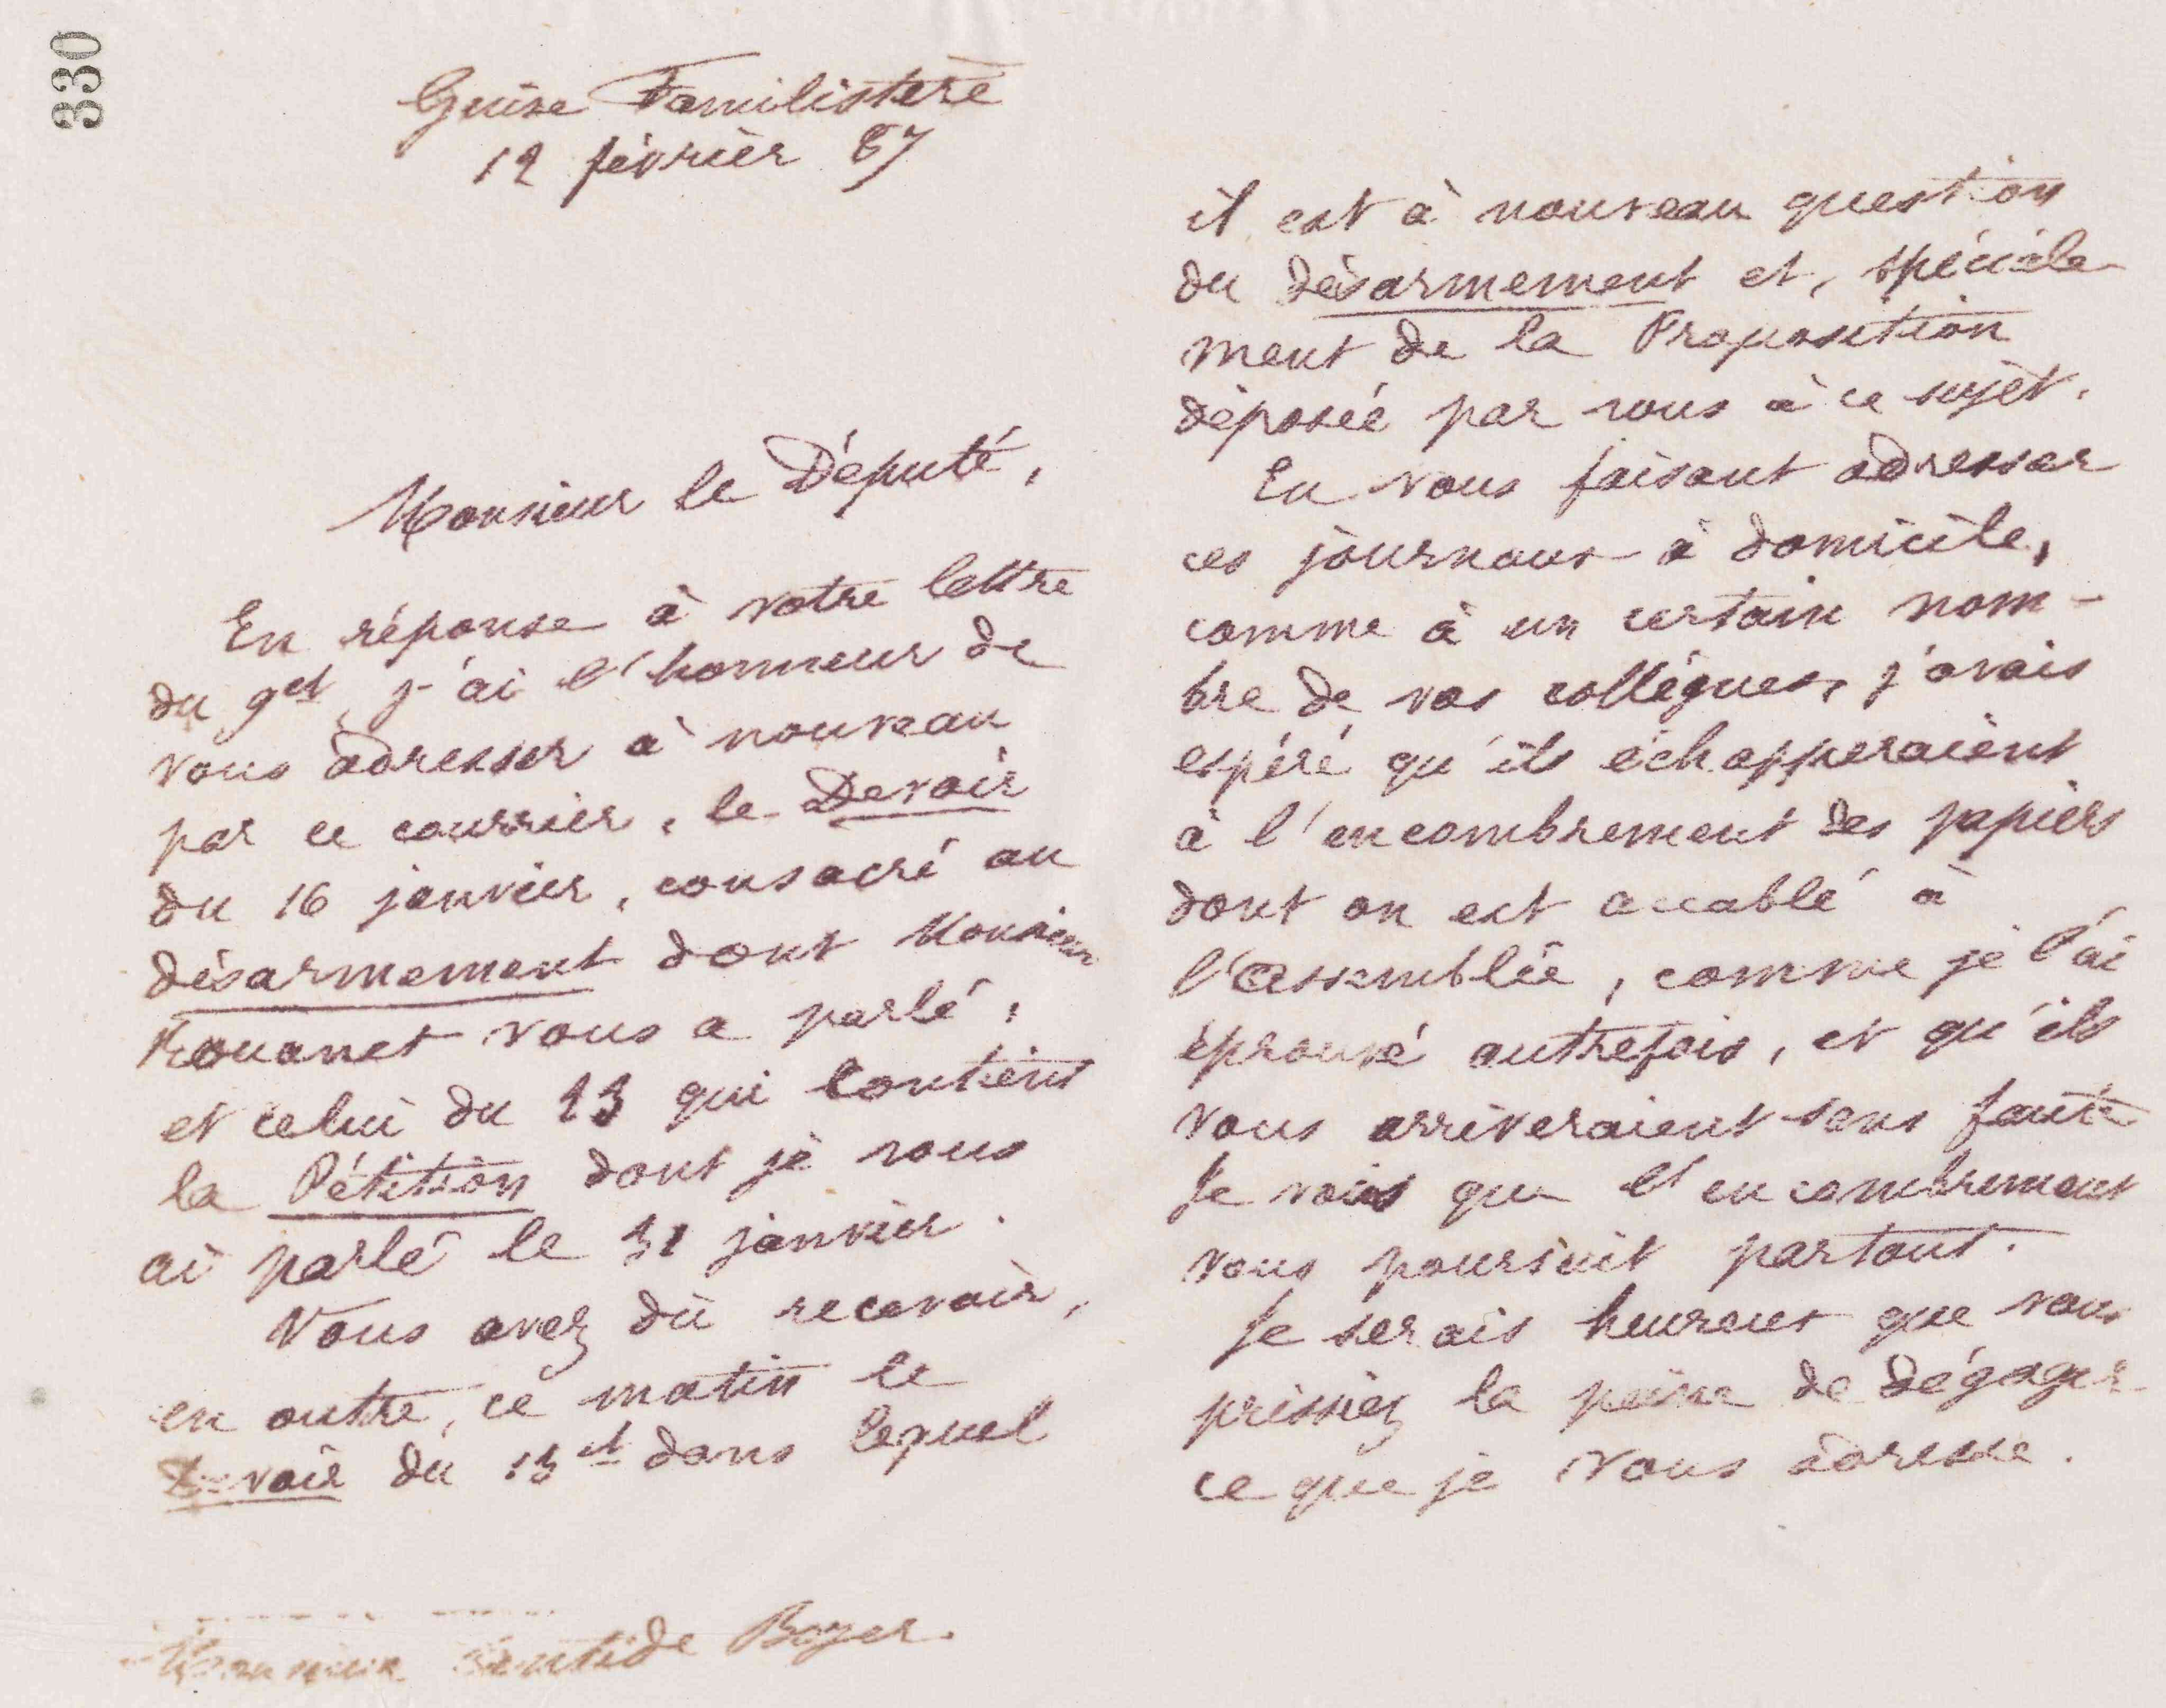 330
Guise Familistère
12 février 87
Monsieur le Député,
En réponse à votre lettre
du 9 ct, j'ai l'honneur de
vous adresser à nouveau
par ce courrier, le Devoir
du 16 janvier, consacré au
désarmement dont Monsieur
Rouanet vous a parlé,
et celui du 23 qui contient
la Pétition dont je vous
ai parlé le 31 janvier.
Vous avez dû recevoir,
en outre, ce matin le
Devoir du 13 ct dans lequel
Monsieur Boyer.
il est à nouveau question
du désarmement et, spéciale
ment de la Proposition
déposée par vous à ce sujet.
En vous faisant adresser
ces journaux à domicile,
comme à un certain nom-
bre de vos collègues, j'avais
espéré qu'ils échapperaient
à l'encombrement des papiers
dont on est accablé à
l'assemblée, comme je l'ai
éprouvé autrefois, et qu'ils
vous arriveraient sans faute
Je vois que l'encombrement
vous poursuit partout.
Je serais heureux que vous
prissiez la peine de dégager
ce que je vous adresse.